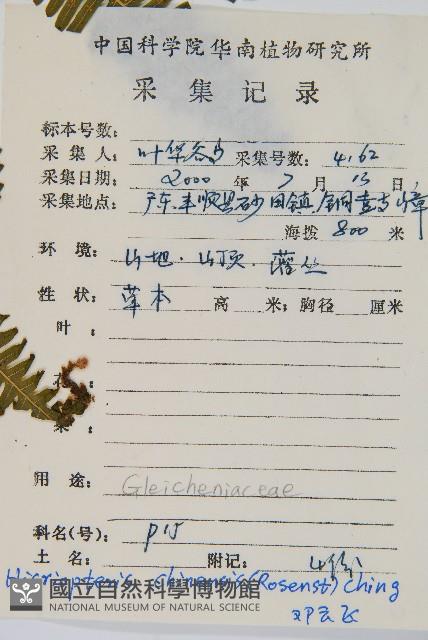 中国科学院华南植物研究所
采集记录
标本号数:
采集人: 叶华谷 采集号数: 4162
采集日期: 2000 年 7 月 13 日
采集地点: 广东丰顺县砂田镇
海拨 800 米
环境: 山地·山顶·灌丛
性状: 草本 高 米; 胸径 厘米
叶:
花:
果:
用途: Gleicheniaceae
科名(号): P15
土名: 附记:
chinensis (Rosenst.) Ching
國立自然科學博物館
NATIONAL MUSEUM OF NATURAL SCIENCE